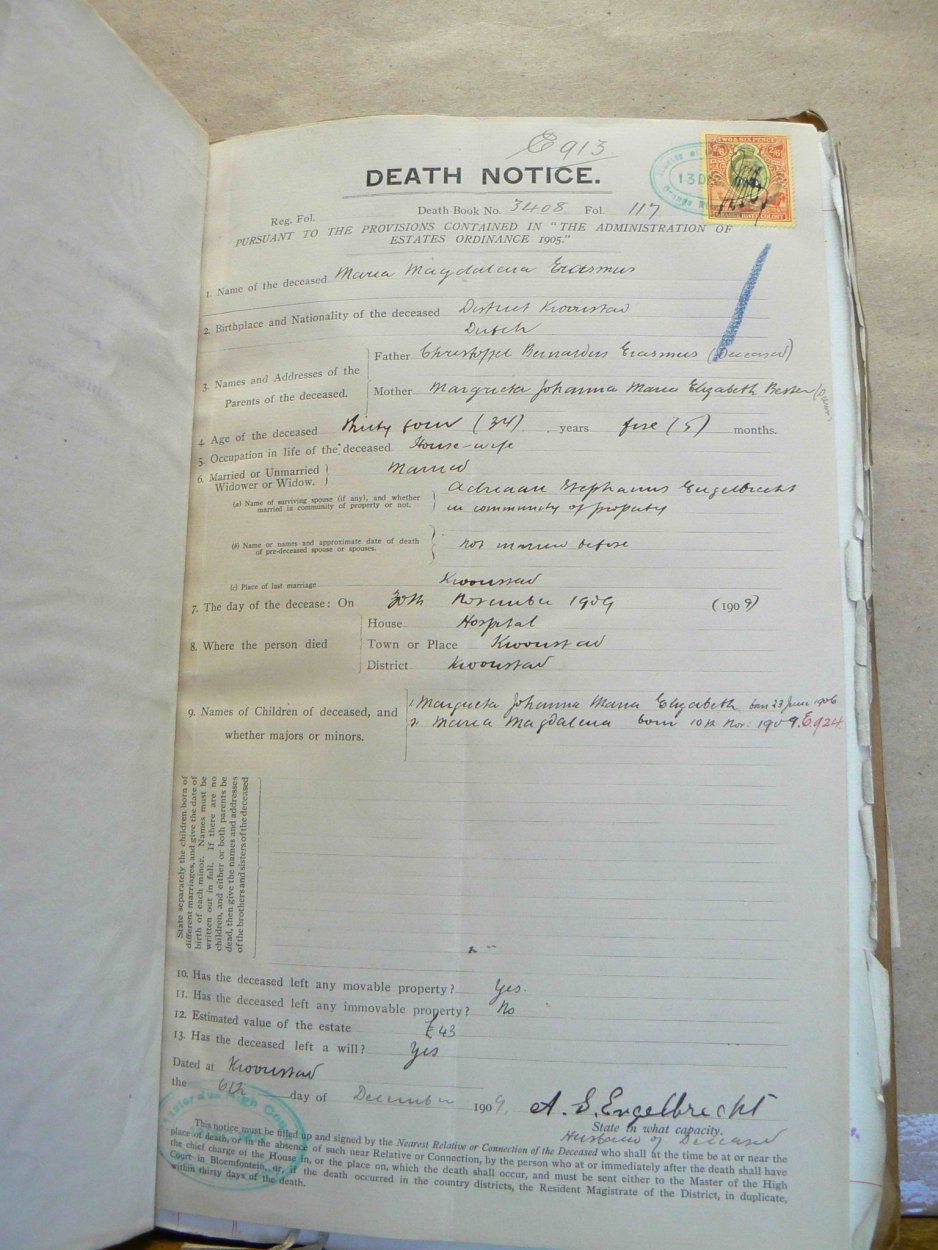 E913
TWO & SIX PENCE
DEATH NOTICE.
13 D
Reg. Fol.
Death Book No. 3408 Fol. 117
PURSUANT TO THE PROVISIONS CONTAINED IN "THE ADMINISTRATION OF
ESTATES ORDINANCE 1905."
1. Name of the deceased Maria Magdalena Erasmus
2. Birthplace and Nationality of the deceased District Kroonstad
Dutch
3. Names and Addresses of the Parents of the deceased.
Father Christoffel Bernardus Erasmus (Deceased)
Mother Margrieta Johanna Maria Elizabeth Bester
4. Age of the deceased thirty four (34) years five (5) months.
5. Occupation in life of the deceased House-wife
6. Married or Unmarried Widower or Widow. Married
(a) Name of surviving spouse (if any), and whether married in community of property or not.
Adriaan Stephanus Engelbrecht
in community of property
(b) Name or names and approximate date of death of pre-deceased spouse or spouses.
not married before
(c) Place of last marriage Kroonstad
7. The day of the decease: On 30th November 1909 (1909)
8. Where the person died
House Hospital
Town or Place Kroonstad
District Kroonstad
9. Names of Children of deceased, and whether majors or minors.
1 Margrieta Johanna Maria Elizabeth born 23 June 1906
2. Maria Magdalena born 10th Nov: 1909. E924
State separately the children born of
different marriages, and give the date of
birth of each minor. Names must be
written out in full. If there are no
children, and either or both parents be
dead, then give the names and addresses
of the brothers and sisters of the deceased
10. Has the deceased left any movable property? Yes.
11. Has the deceased left any immovable property? No
12. Estimated value of the estate £43
13. Has the deceased left a will? Yes
Dated at Kroonstad
the 6th day of December 1909.
A. S. Engelbrecht
State in what capacity.
Husband of Deceased
This notice must be filled up and signed by the Nearest Relative or Connection of the Deceased who shall at the time be at or near the
place of death, or in the absence of such near Relative or Connection, by the person who at or immediately after the death shall have
the chief charge of the House in, or the place on, which the death shall occur, and must be sent either to the Master of the High
Court in Bloemfontein, or, if the death occurred in the country districts, the Resident Magistrate of the District, in duplicate,
within thirty days of the death.